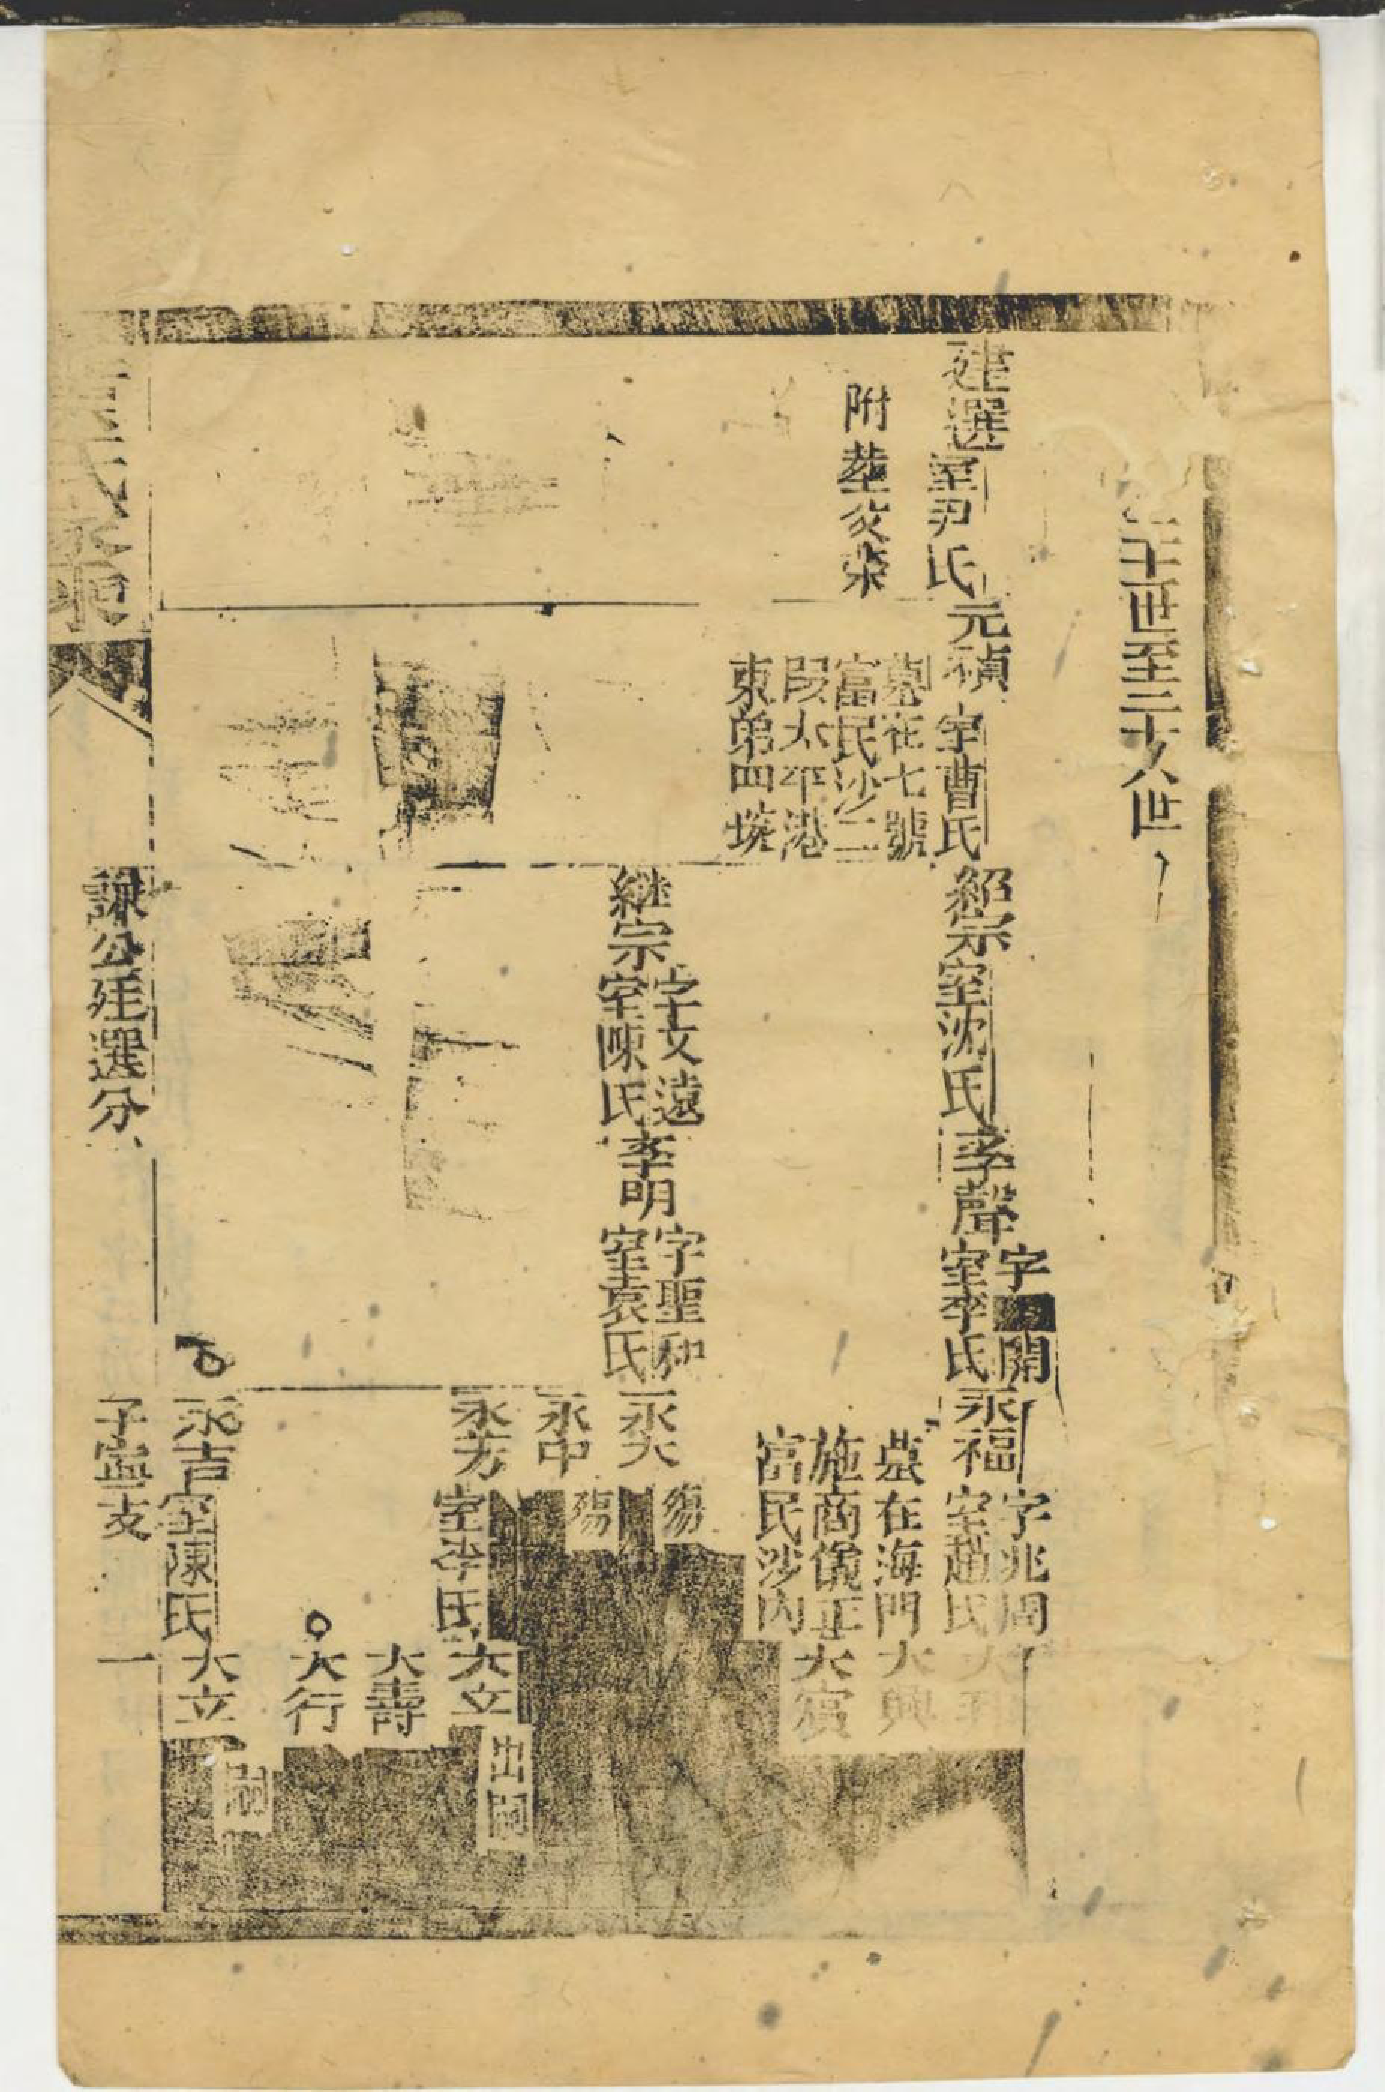 二十世至二十八世
建選室尹氏
附塟父塋
元禎室曹氏
墓在七號
富民沙二
段太平港
東第四埭
紹宗室沈氏
継宗字文遠
室陳氏
季聲字開
室李氏
季明字聖和
室袁氏
永福字兆周
室趙氏
墓在海門
施商儀正
富民沙內
永大殤
永中殤
永芳室李氏
永吉室陳氏
大興
大賓
大立出嗣
大壽
大行
大立嗣
謙公廷選分
子寧支
一